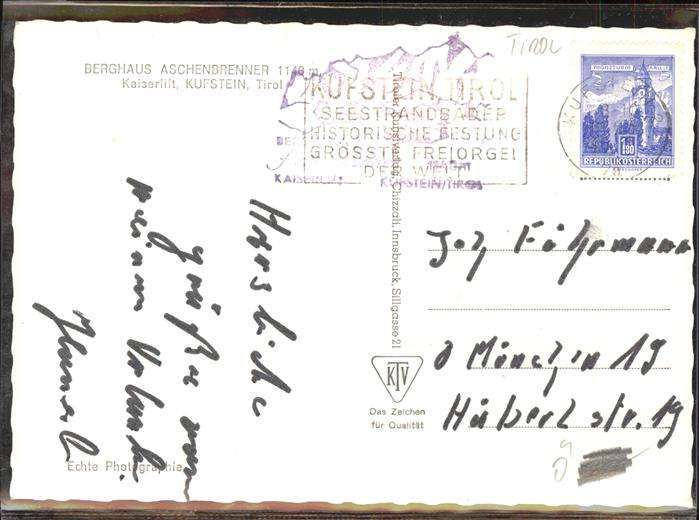 BERGHAUS ASCHENBRENNER 1148 m
Kaiserlift, KUFSTEIN, Tirol
TIROL
KUFSTEIN, TIROL
SEESTRANDBÄDER
HISTORISCHE FESTUNG
GRÖSSTE FREIORGEL
DER WELT
KUFSTEIN/TIROL
MÜNZTURM
HALL
1.80
REPUBLIK ÖSTERREICH
Tiroler Kunstverlag Chizzali, Innsbruck, Sillgasse 21
Herzliche
Grüße von
meinem Urlaub
Fuhrmann
München 19
str. 19
KTV
Das Zeichen
für Qualität
Echte Photographie